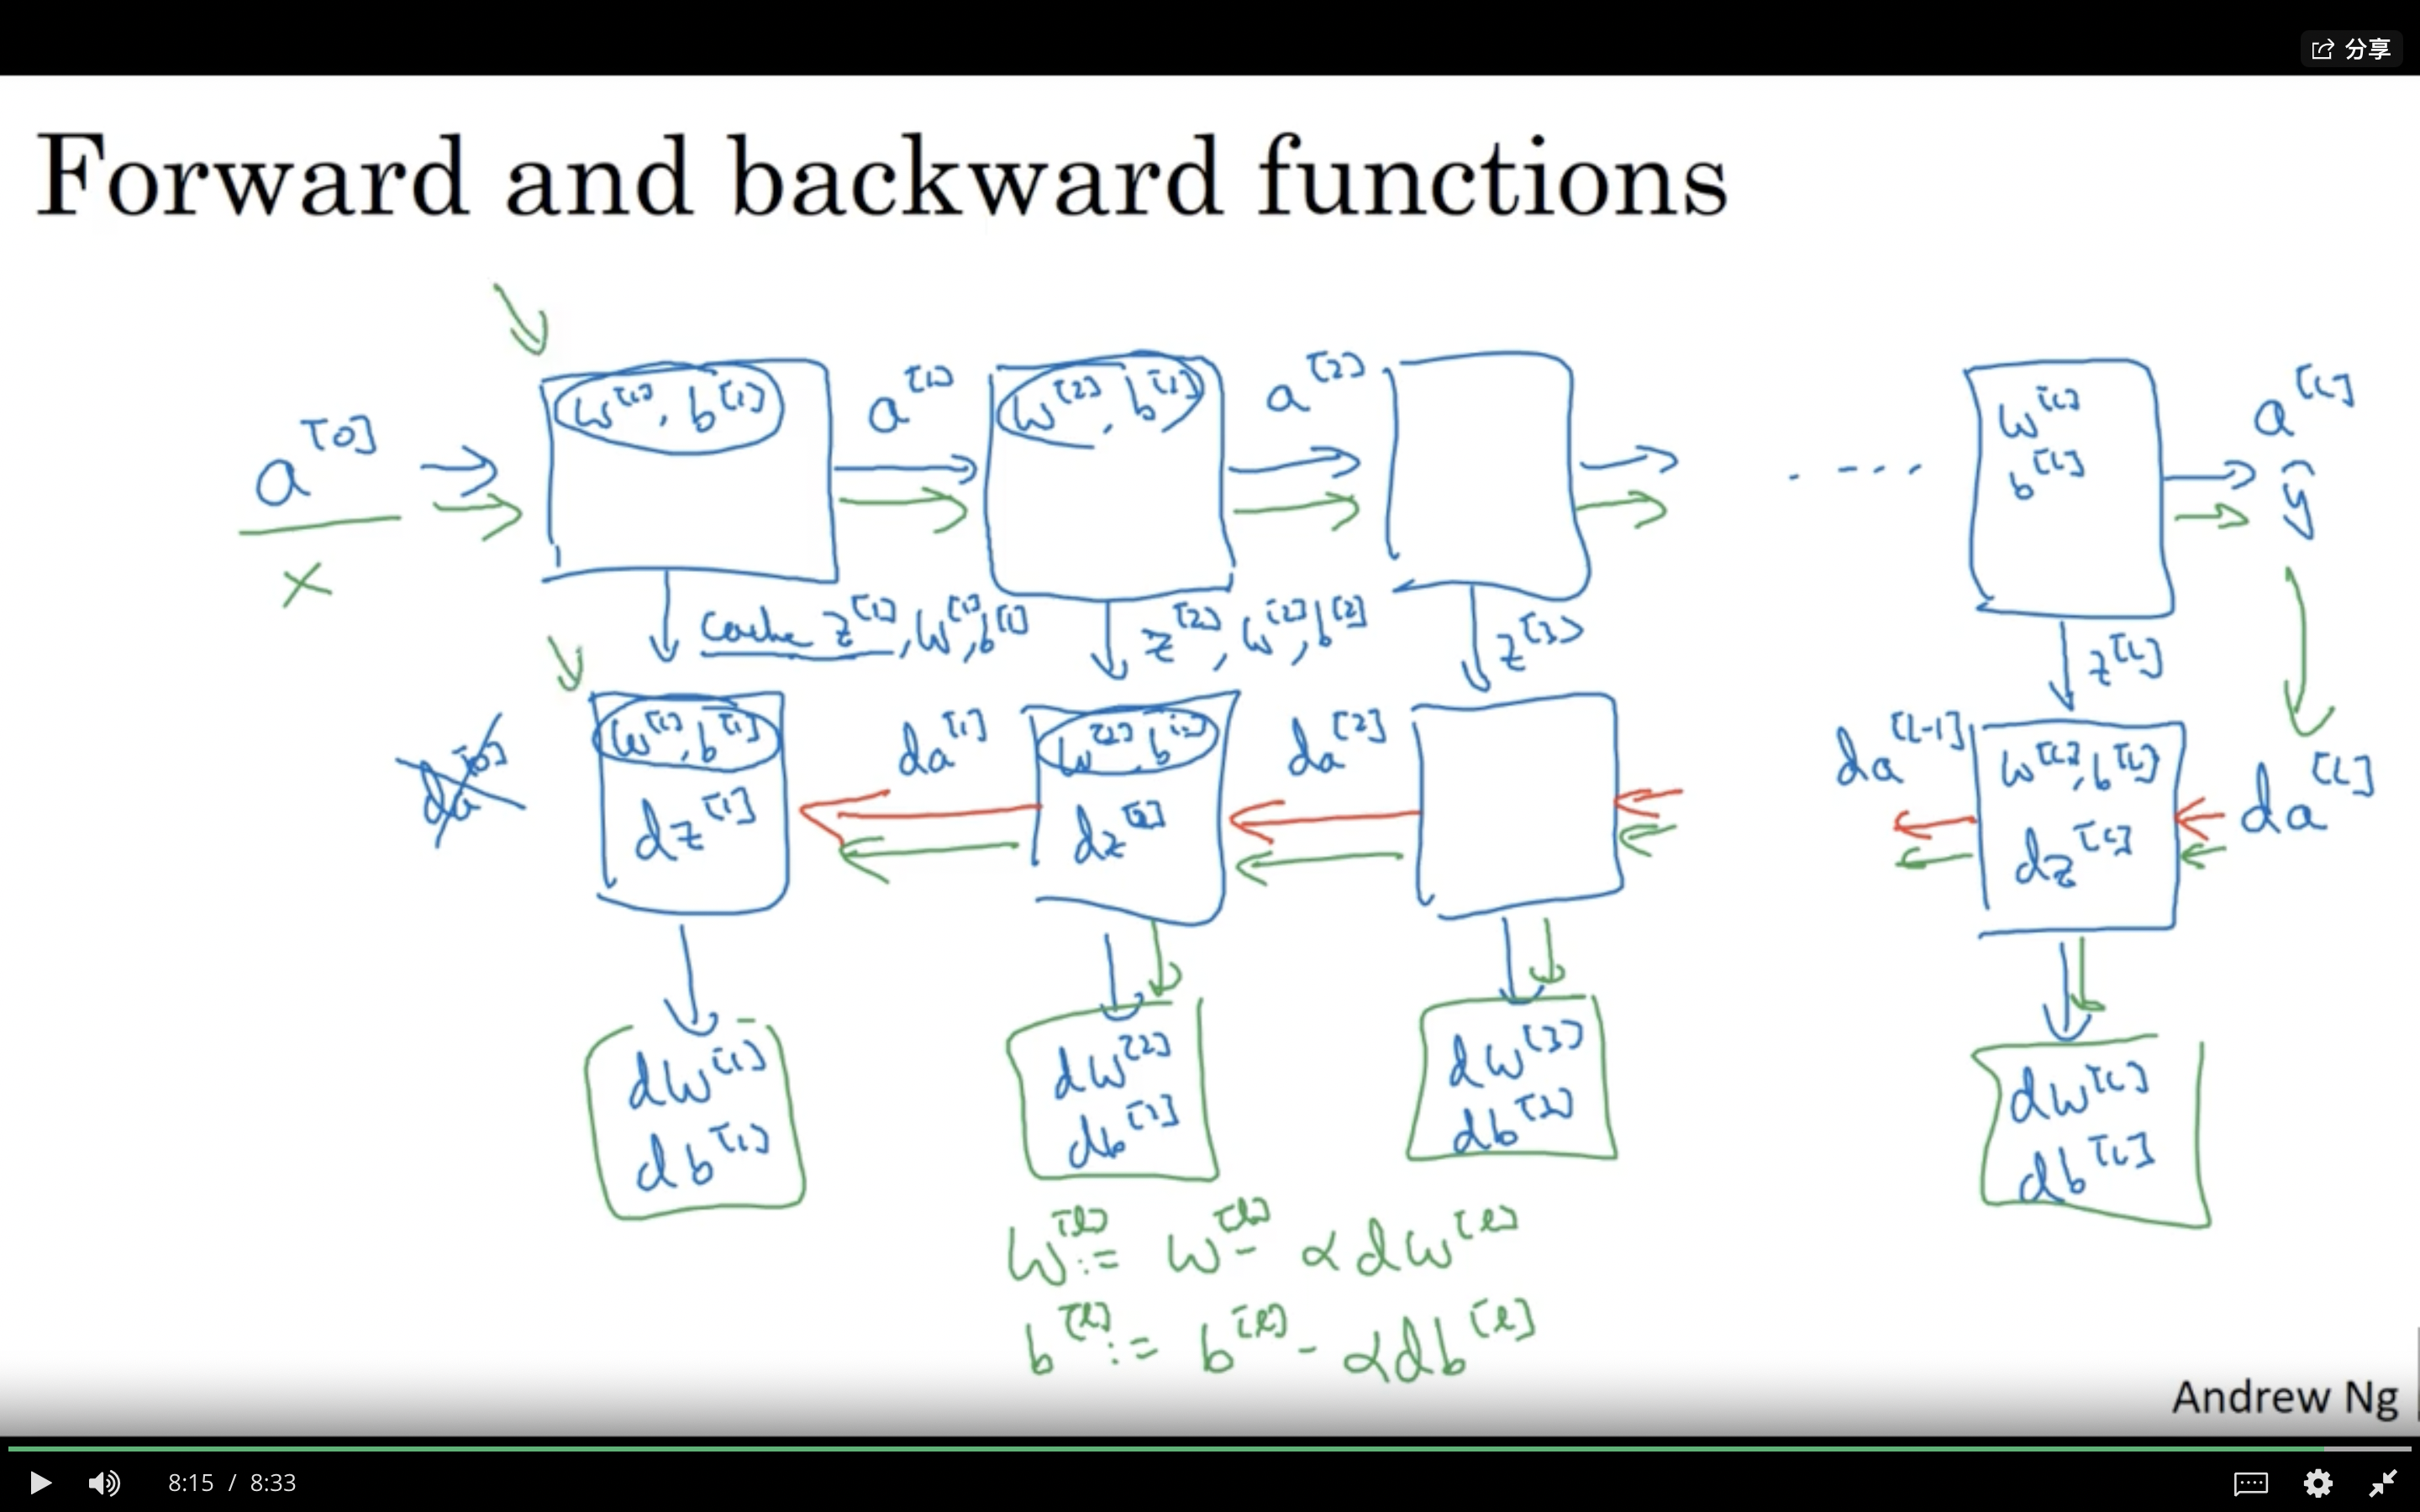 分享
Forward and backward functions
a^[0] w^[1], b^[1] a^[1] w^[2], b^[2] a^[2] .... w^[L] a^[L]
b^[L] ŷ
x
cache z^[1], w^[1], b^[1] z^[2], w^[2], b^[2] z^[3] z^[L]
da^[0] w^[1], b^[1] da^[1] w^[2], b^[2] da^[2] da^[L-1] w^[L], b^[L] da^[L]
dz^[1] dz^[2] dz^[L]
dw^[1] dw^[2] dw^[3] dw^[L]
db^[1] db^[2] db^[3] db^[L]
w^[l] := w^[l] - αdw^[l]
b^[l] := b^[l] - αdb^[l]
Andrew Ng
8:15 / 8:33